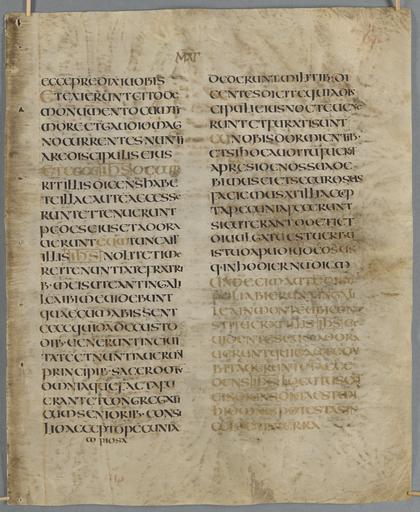 MAT
ecce predixi uobis
et exierunt cito de
monumento cum ti
more et gaudio mag
no currentes nunti
are discipulis eius
et ecce ihs occur
rit illis dicens habe
te illae autem accesse
runt et tenuerunt
pedes eius et adora
uerunt eum tunc ait
illis ihs nolite time
re ite nuntiate fratri
b· meis ut eant in gali
leam ibi me uidebunt
quae cum abissent
ecce quidam de custo
dib· uenerunt in ciui
tatem et nuntiauerun
principib· sacerdotu
omnia quae facta fu
erant et congregati
cum seniorib· consi
lio accepto pecunia
copiosa
dederunt militib· di
centes dicite quia dis
cipuli eius nocte uene
runt et furati sunt
eum nobis dormientib·
et si hoc auditum fuerit
a preside nos suade
bimus ei et securos uos
faciemus at illi accep
ta pecunia fecerunt
sicut erant docti et
diuulgatum est uerbu
istud apud iudeos us
q· in hodiernum diem
undecim autem disci
puli abierunt in gali
leam in montem ubi con
stituerat illis ihs et
uidentes eum adora
uerunt quidam autem du
bitauerunt et acce
dens ihs locutus est
eis dicens data est mi
hi omnis potestas in
caelo et in terra